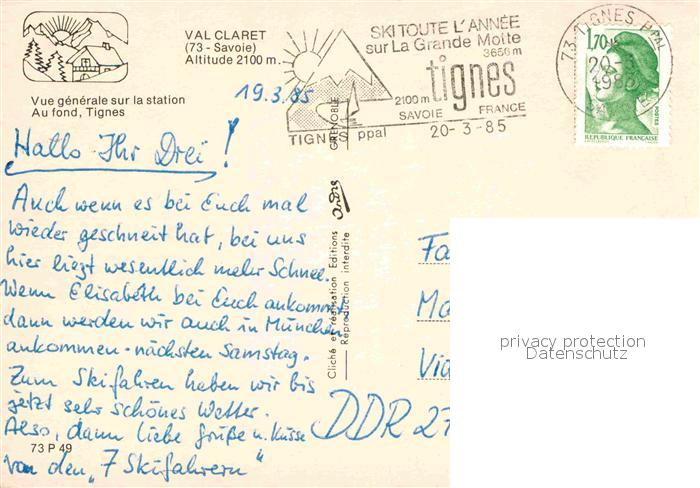 VAL CLARET
(73 - Savoie)
Altitude 2100 m.
Vue générale sur la station
Au fond, Tignes
SKI TOUTE L'ANNÉE
sur La Grande Motte
3656 m
tignes
2100 m
SAVOIE FRANCE
TIGNES ppal
20-3-85
73 TIGNES PPAL
1,70
20-
198
POSTES
REPUBLIQUE FRANÇAISE
19.3.85
Hallo Ihr Drei!
Auch wenn es bei Euch mal
wieder geschneit hat, bei uns
hier liegt wesentlich mehr Schnee.
Wenn Elisabeth bei Euch ankommt
dann werden wir auch in München
ankommen - nächsten Samstag.
Zum Skifahren haben wir bis
jetzt sehr schönes Wetter.
Also, dann liebe Grüße u. Küsse
von den „7 Skifahrern"
73 P 49
Cliché et réalisation Editions André GRENOBLE
Reproduction interdite
Fa
Ma
Via
DDR 27
privacy protection
Datenschutz